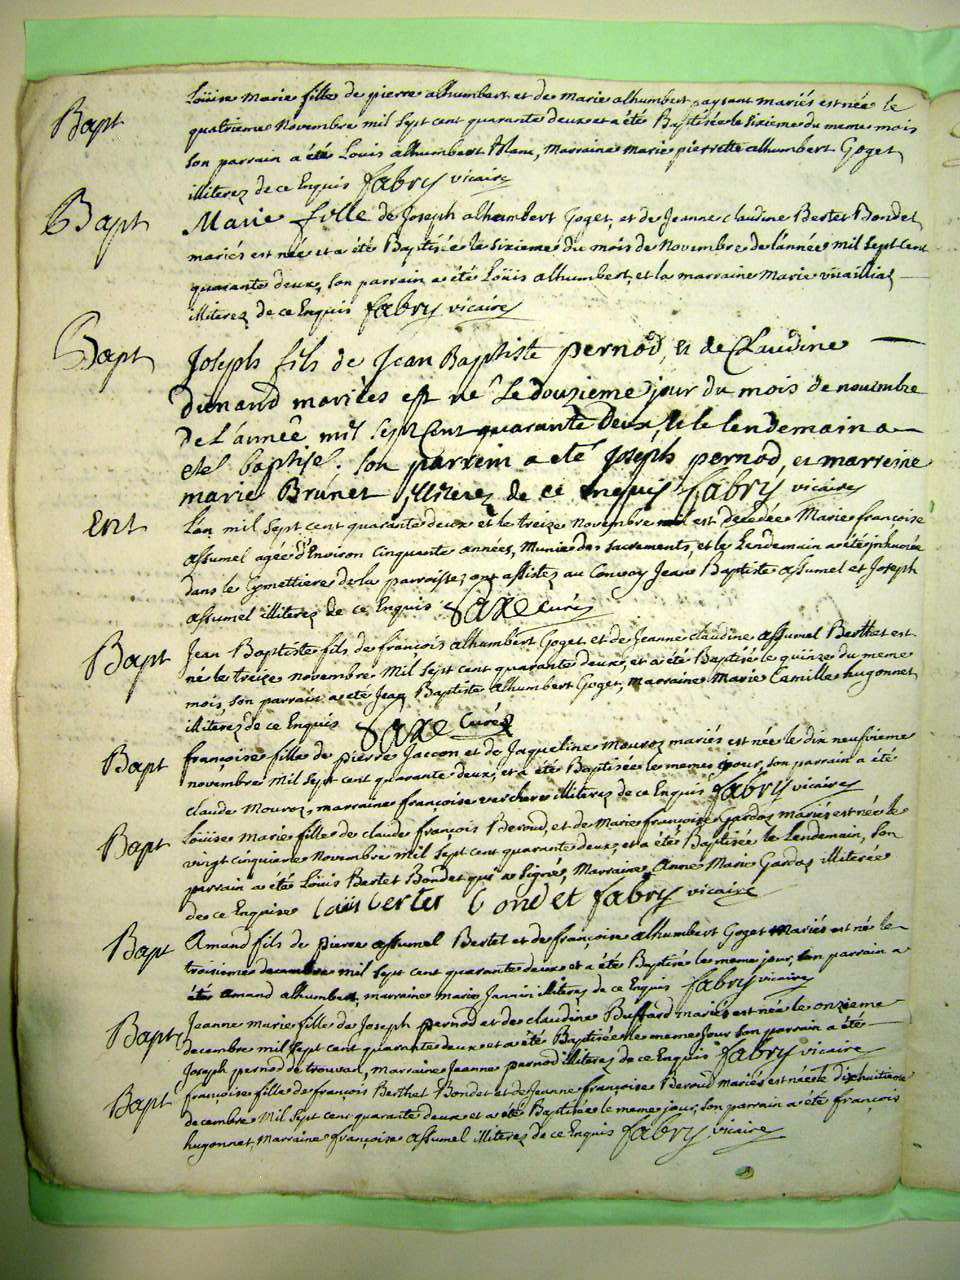 Bapt
Loüise Marie fille de pierre alhumbert et de Marie alhumbert paysant mariés est née le
quatrieme Novembre mil sept cent quarante deux et a été Baptisée le sixieme du meme mois
son parrain a été Louis alhumbert Marraine marie pierrette alhumbert Goget
illiterez de ce Enquis fabry vicaire
Bapt
Marie fille de Joseph alhumbert Goget, et de Jeanne claudine Bertet Bondet
mariés est née et a été Baptisée le sixieme du mois de Novembre de l'année mil sept cent
quarante deux, son parrain a été Loüis alhumbert, et la marraine Marie
illiterez de ce Enquis fabry vicaire
Bapt
Joseph fils de Jean Baptiste pernod, et de Claudine
dunand mariées est né Le douzieme jour du mois de novembre
de L'année mil sept Cent quarante deux, et le lendemain a
eté baptisé. son parrein a eté Joseph pernod, et marreine
marie Brunet illiterez de ce enquis fabry vicaire
Ent
L'an mil sept cent quarante deux et le treize novembre est decedée Marie françoise
assumel agée d'Environ Cinquante années, Munie des sacrements, et le Lendemain a été inhumée
dans le Cymettiere de la parroisse, ont assistez au Convoy Jean Baptiste assumel et Joseph
assumel illiterez de ce Enquis Saxe curé
Bapt
Jean Baptiste fils de françois alhumbert Goget et de Jeanne claudine assumel Berthet est
né le treize novembre Mil sept cent quarante deux, et a été Baptisé le quinze du meme
mois, son parrain a été Jean Baptiste alhumbert Goget, marraine Marie Camille hugonnet
illiterez de ce Enquis Saxe Curé
Bapt
françoise fille de pierre Jaccon et de Jaqueline Mouroz mariés est née le dix neufvieme
novembre mil sept cent quarante deux, et a été Baptisée le meme jour, son parrain a été
claude Mouroz, marraine françoise verchere illiterez de ce Enquis fabry vicaire
Bapt
Loüise Marie fille de claude françois Beroud, et de Marie françoise Gardoz mariés est née le
vingt cinquiame Novembre mil sept cent quarante deux, et a été Baptisée le Lendemain, son
parrain a été Loüis Bertet Bondet qui a signé, Marraine Anne Marie Gardoz illiterée
de ce Enquise Loüis berter bondet fabry vicaire
Bapt
Amand fils de pierre assumel Bertet et de françoise alhumbert Goget Mariés est né le
troisieme decembre mil sept cent quarante deux et a été Baptisé le meme jour, son parrain a
été Amand alhumbert, marraine marie Jannin illiterez de ce Enquis fabry vicaire
Bapt
Jeanne marie fille de Joseph pernod et de claudine Buffard mariés est née le onzieme
decembre mil sept cent quarante deux et a été Baptisée le meme Jour son parrain a été
Joseph pernod de trouvan, marraine Jeanne pernod illiterez de ce Enquis fabry vicaire
Bapt
françoise fille de françois Berthet Bondet et de Jeanne françoise Beroud mariés est née le dixhuitieme
decembre Mil sept cent quarante deux et a été Baptisée le meme jour, son parrain a été françois
hugonnet, Marraine françoise assumel illiterez de ce Enquis fabry vicaire